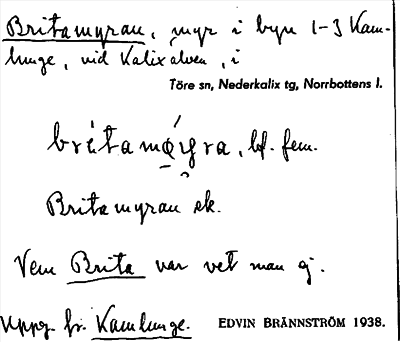 Britamyran, myr i byn 1-3 Kam-
lunge, vid Kalixälven, i
Töre sn, Nederkalix tg, Norrbottens l.
britamøyra, bf. fem.
Britamyran ek.
Vem Brita var vet man ej.
Uppg. fr. Kamlunge.
EDVIN BRÄNNSTRÖM 1938.